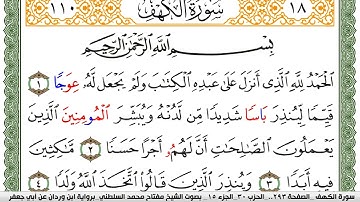 ١١٠ سُورَةُ الْكَهْفِ ١٨
بِسْمِ اللَّهِ الرَّحْمَٰنِ الرَّحِيمِ
الْحَمْدُ لِلَّهِ الَّذِي أَنزَلَ عَلَىٰ عَبْدِهِ الْكِتَابَ وَلَمْ يَجْعَل لَهُ عِوَجًا ١
قَيِّمًا لِيُنذِرَ بَاسًا شَدِيدًا مِن لَدُنْهُ وَيُبَشِّرَ الْمُومِنِينَ الَّذِينَ
يَعْمَلُونَ الصَّالِحَاتِ أَنَّ لَهُمُ أَجْرًا حَسَنًا ٢ مَاكِثِينَ
فِيهِ أَبَدًا ٣ وَيُنذِرَ الَّذِينَ قَالُوا اتَّخَذَ اللَّهُ وَلَدًا ٤
سورة الكهف الصفحة ٢٩٣... الحزب ٣٠ الجزء ١٥.. بصوت الشيخ مفتاح محمد السلطني .برواية ابن وردان عن أبي جعفر